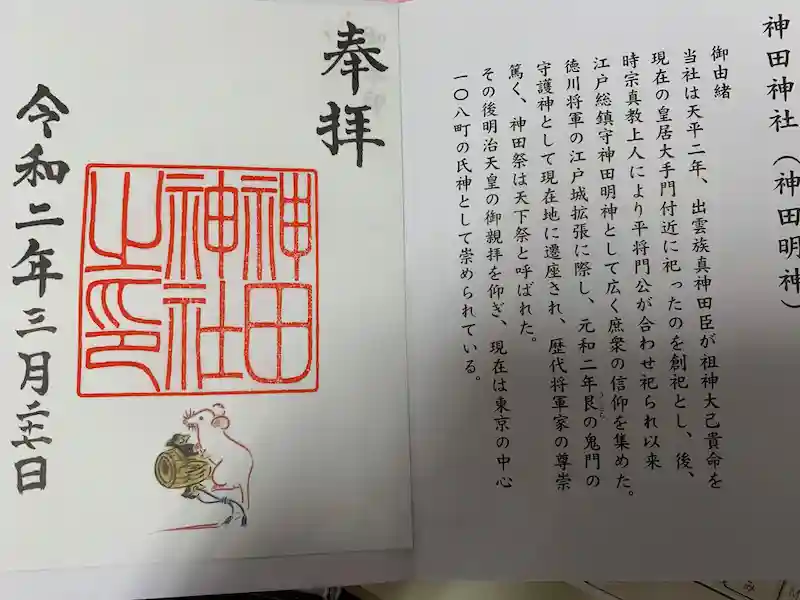 神田神社（神田明神）
御由緒
当社は天平二年、出雲族真神田臣が祖神大己貴命を
現在の皇居大手門付近に祀ったのを創祀とし、後、
時宗真教上人により平将門公が合わせ祀られ以来
江戸総鎮守神田明神として広く庶衆の信仰を集めた。
徳川将軍の江戸城拡張に際し、元和二年艮の鬼門の
守護神として現在地に遷座され、歴代将軍家の尊崇
篤く、神田祭は天下祭と呼ばれた。
その後明治天皇の御親拝を仰ぎ、現在は東京の中心
一〇八町の氏神として崇められている。
奉拝
神田
神社
之印
令和二年三月二十七日